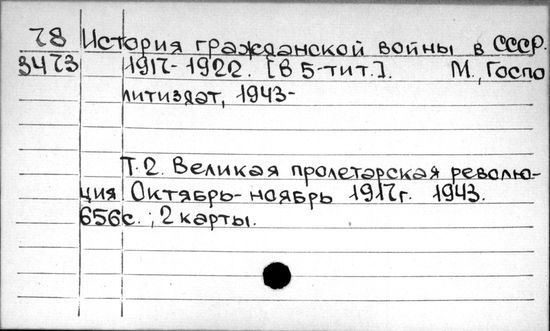 78 История гражданской войны в СССР.
3473 1917-1922. [в 5-тит.]. М., Госпо
литиздат, 1943-
Т.2. Великая пролетарская револю-
ция Октябрь-ноябрь 1917г. 1943.
656с.; 2 карты.